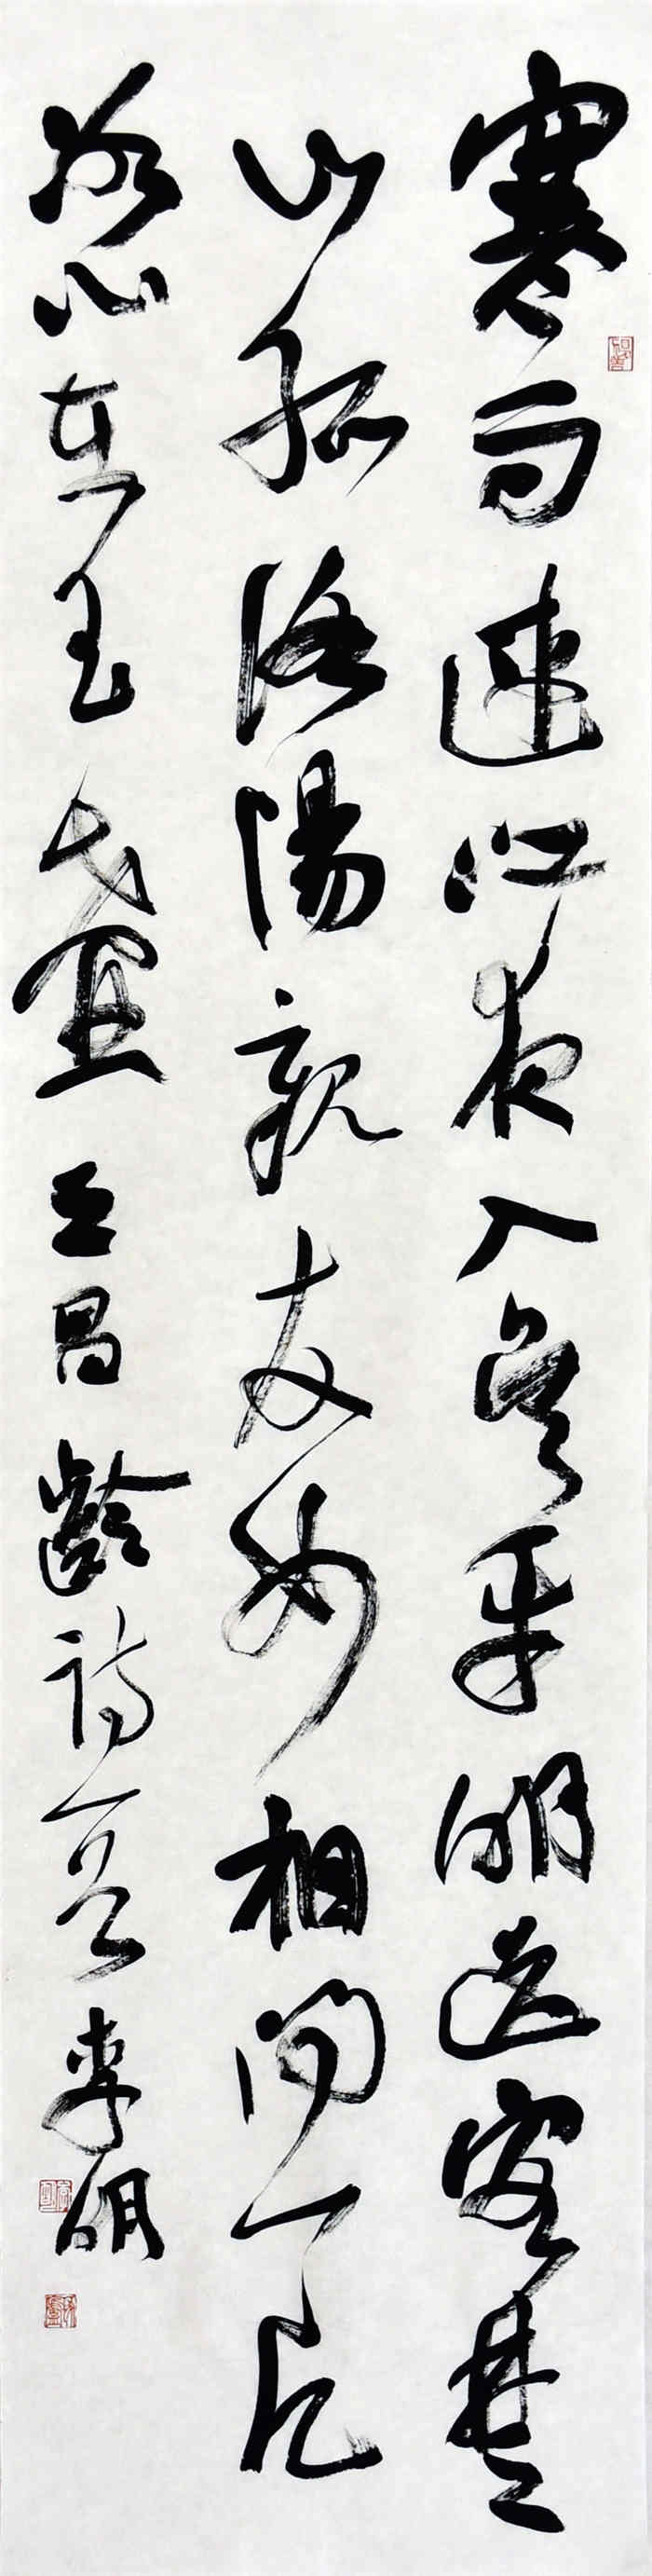 寒雨連江夜入吳平明送客楚
山孤洛陽親友如相問一片
冰心在玉壺王昌齡詩一首李明